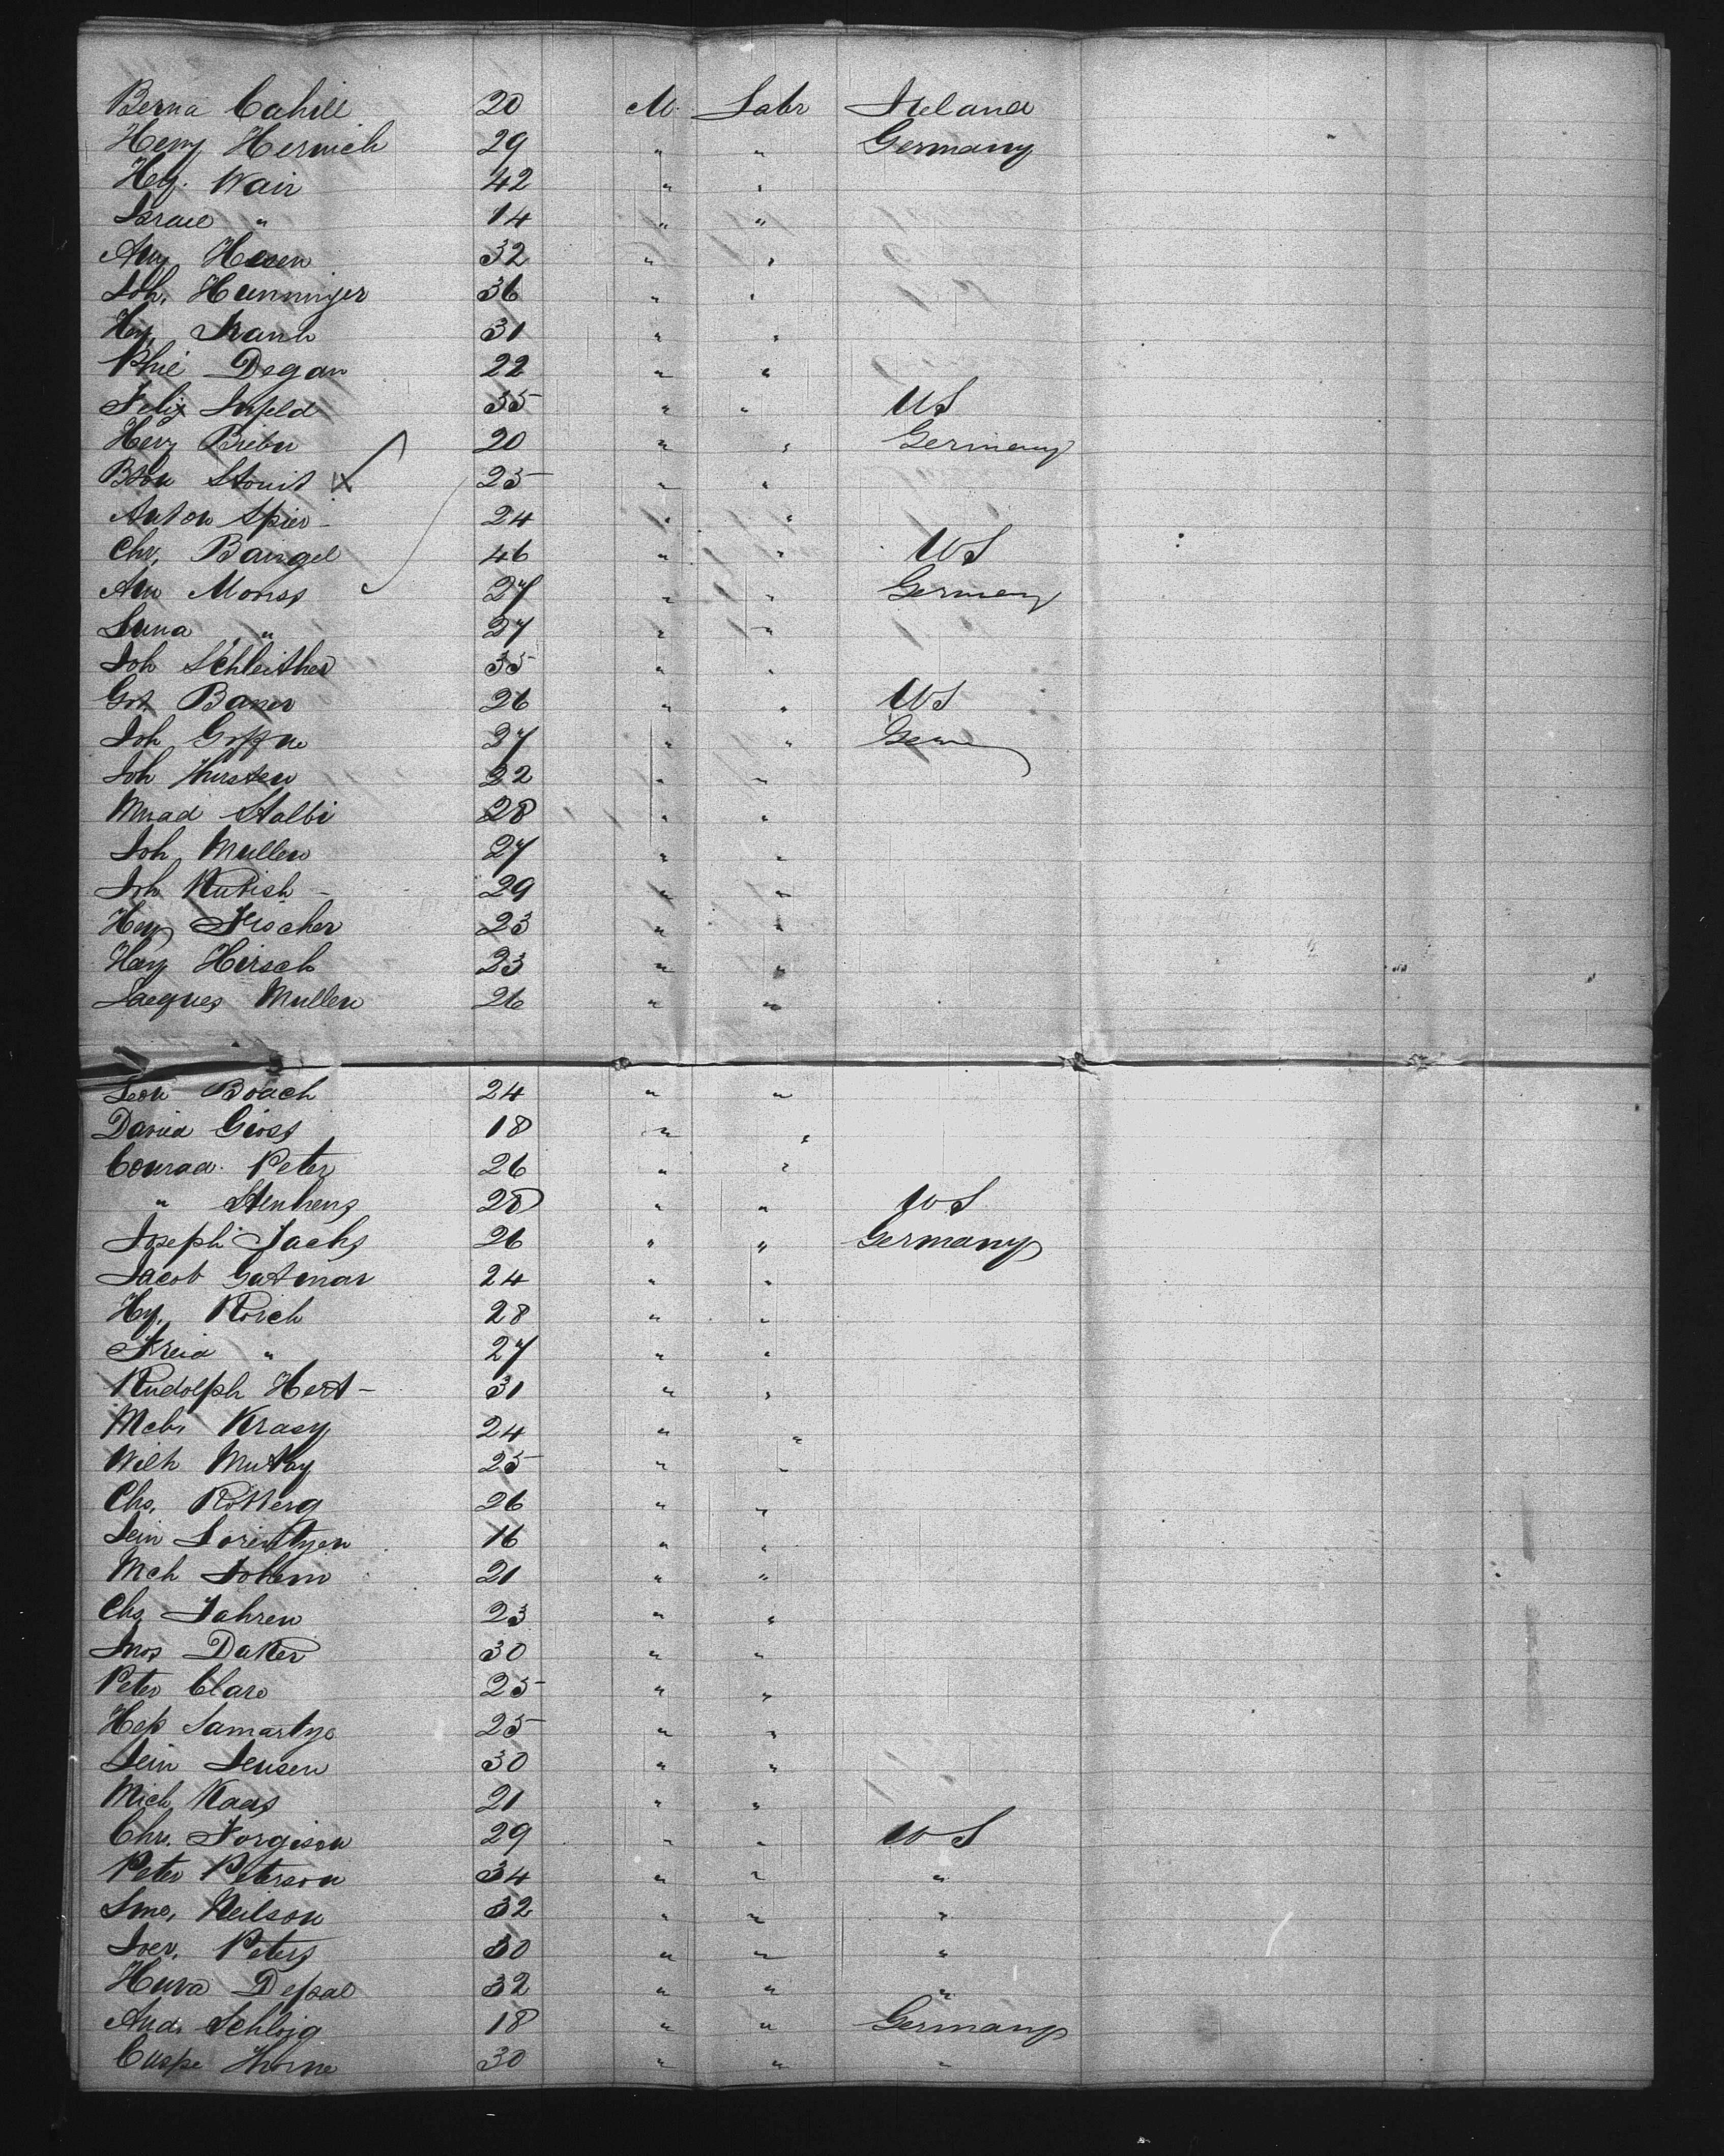 Berna Cahill 20 M. Labr Ireland
Heny Hernich 29 " " Germany
Hey. Wair 42 " "
Israel " 14 " "
Aug Hesen 32 " "
Joh. Hunninger 36 " "
Hey. Krank 31 " "
Phil Degan 22 " "
Felix Infeld 35 " " US
Heny Briebn 20 " " Germany
Stouit X 25 " "
Anton Spier 24 " "
Chr. Baingel 46 " " US
An Moriss 27 " " Germany
Luna " 27 " "
Joh Schleither 35 " "
Got Baner 26 " " US
Joh 37 " " Ger
Joh Thursten 22 " "
Mnrad Stalbi 28 " "
Joh Mullen 27 " "
Joh Rubish 29 " "
Hey Fischer 23 " "
Hey Hirsch 23 " "
Jacques Mullen 26 " "
Leon Boach 24 " "
David Giess 18 " "
Conrad Peter 26 " "
" Stenhens 28 " " US
Joseph Jachs 26 " " Germany
Jacob Gutmar 24 " "
Hy. Roich 28 " "
Freid " 27 " "
Rudolph Hert 31 " "
Mch. Krasy 24 " "
Wilh Muthy 25 " "
Chs. Rotterg 26 " "
Jein Lorentzen 16 " "
Mch Johem 21 " "
Chs Fahren 23 " "
Jnos Daker 30 " "
Peter Claro 25 " "
Hep Samartye 25 " "
Jein Jensen 30 " "
Mich Kaas 21 " "
Chrs. Jorgison 29 " " US
Peter Peterson 34 " " "
Jmo. Neilson 32 " " "
Iver. Peters 30 " " "
Huva Depal 32 " " "
And. Schloig 18 " " Germany
Cuspe Thorne 30 " " "